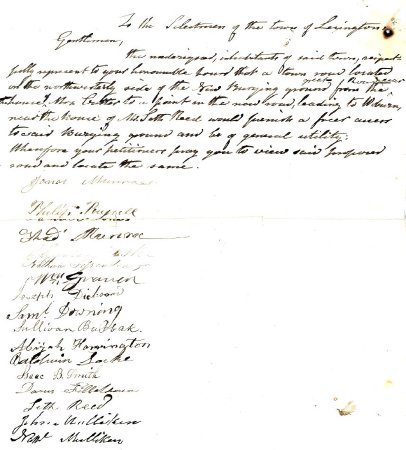 To the Selectmen of the town of Lexington
Gentlemen,
The undersigned, inhabitants of said town, respect
fully represent to your honourable board that a town road located
on the northwesterly side of the Old Burying ground from the
house of Mrs to a point in the now road, leading to Woburn,
near the House of Mr. Seth Reed would furnish a freer access
to said Burying ground and be of general utility;
Wherefore your petitioners pray you to view said proposed
road and locate the same.
Jonas Munroe
Philip Russell
Thad Munroe
Nathan
Wm Graves
Joseph Dickson
Saml Downing
Sullivan Burbank
Abijah Harrington
Baldwin Locke
Isaac B. Smith
Darius Fillebrown
Seth Reed
John Mulliken
Nathl Mulliken